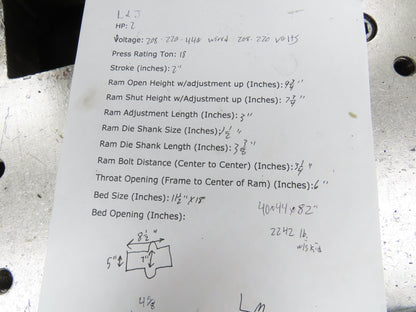 L & J
HP: 2
Voltage: 208-220-440 wired 208-220 volts
Press Rating Ton: 18
Stroke (inches): 2"
Ram Open Height w/adjustment up (Inches): 9 3/4"
Ram Shut Height w/Adjustment up (Inches): 7 3/4"
Ram Adjustment Length (Inches): 3"
Ram Die Shank Size (Inches): 1 1/2"
Ram Die Shank Length (Inches): 3 3/8"
Ram Bolt Distance (Center to Center) (Inches): 3 1/4"
Throat Opening (Frame to Center of Ram) (Inches): 6"
Bed Size (Inches): 11 1/2" X 18
40x44x82"
Bed Opening (Inches):
2242 lb.
w/skid
8 1/2"
5"
7"
4 5/8